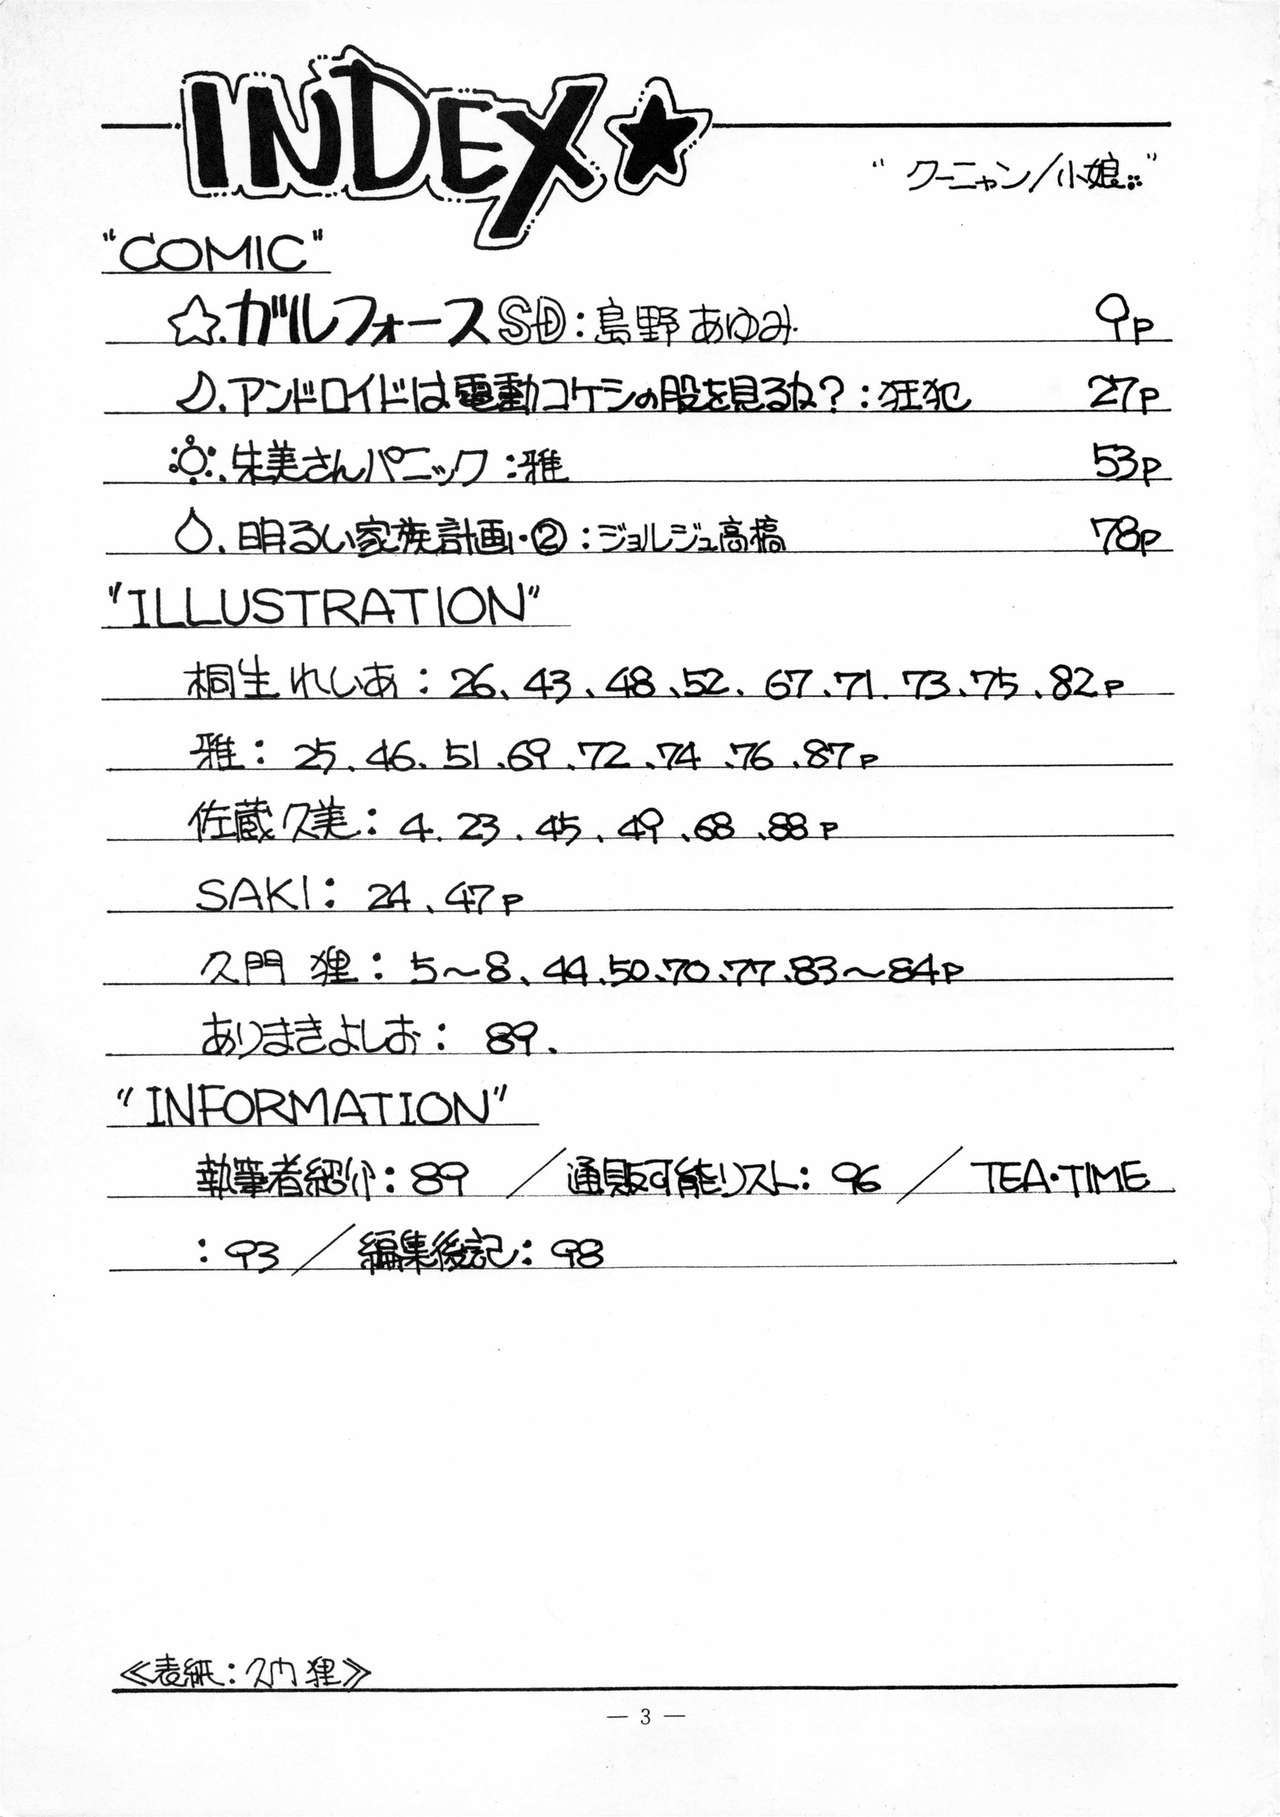 INDEX★
"クーニャン/小娘"
"COMIC"
☆.ガルフォースSD:島野あゆみ 9p
☽.アンドロイドは電動コケシの股を見るか?:狂犯 27p
.朱美さんパニック:雅 53p
.明るい家族計画・②:ジョルジュ高橋 78p
"ILLUSTRATION"
桐生れいあ:26、43、48、52、67、71、73、75、82p
雅:25、46、51、69、72、74、76、87p
佐蔵久美:4、23、45、49、68、88p
SAKI:24、47p
久門 狸:5〜8、44、50、70、77、83〜84p
ありまきよしお:89.
"INFORMATION"
執筆者紹介:89 /通販可能リスト:96 / TEA・TIME
:93 /編集後記:98
≪表紙:久門 狸≫
— 3 —